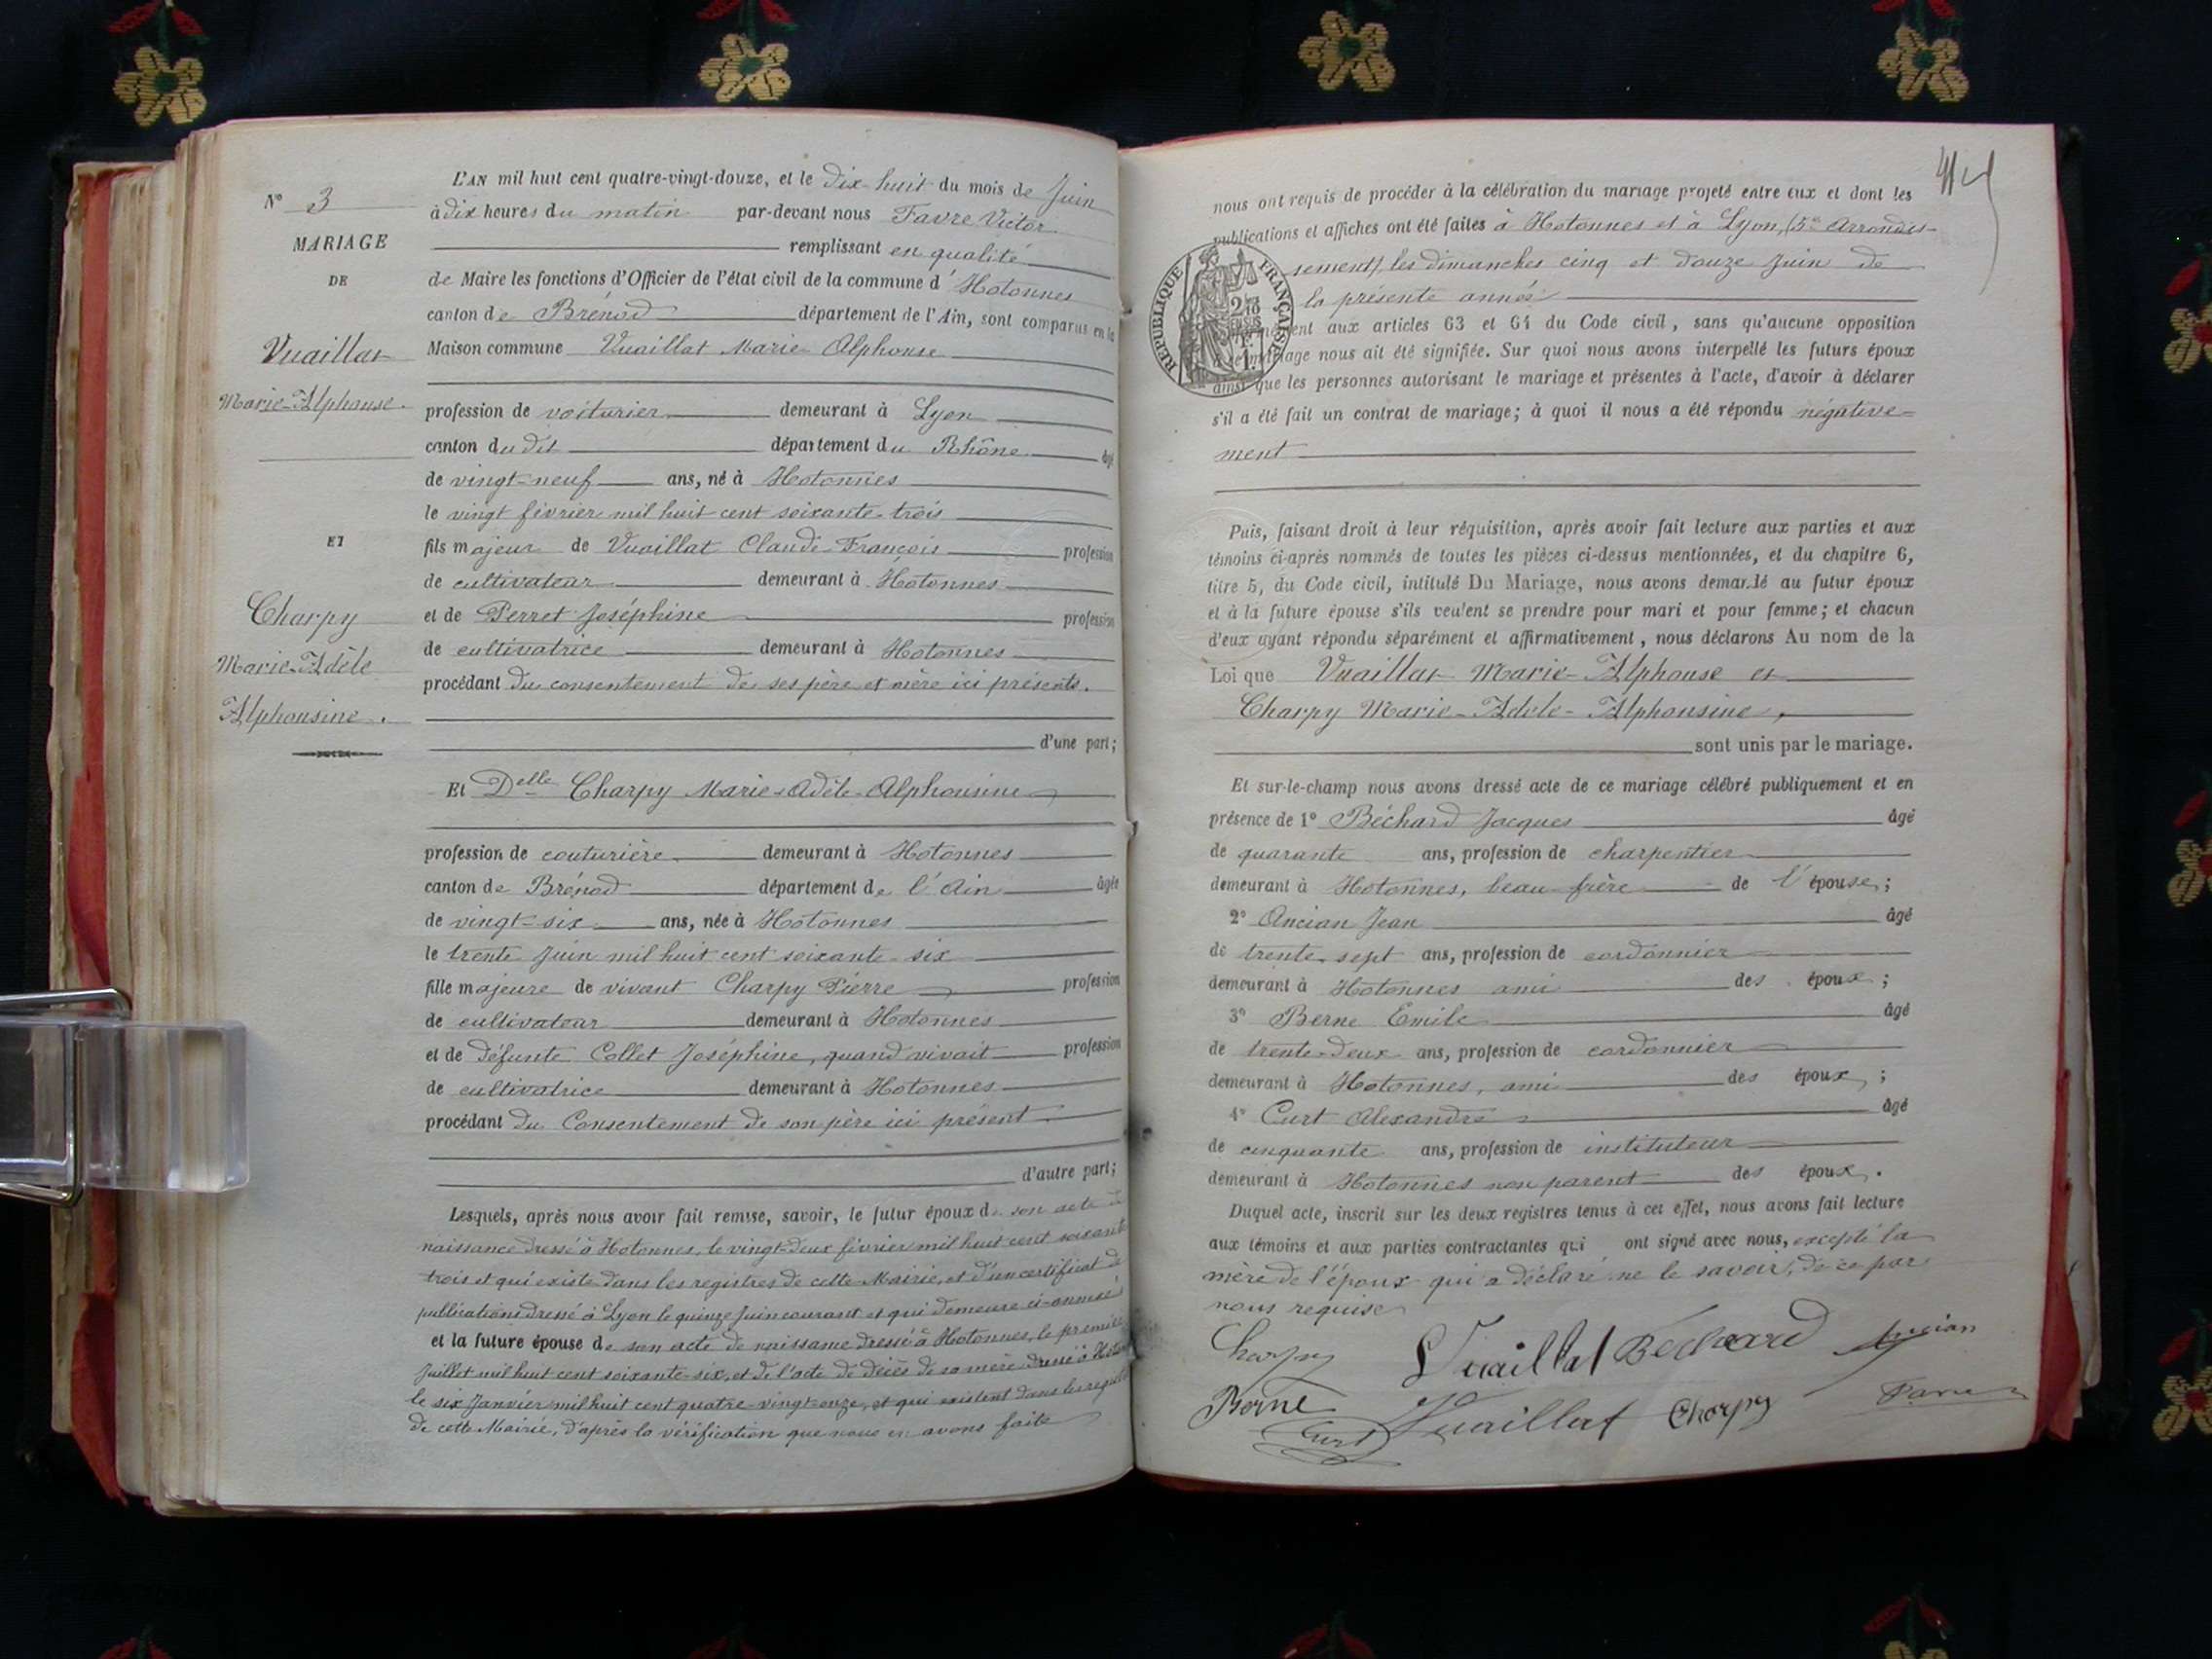 N° 3
MARIAGE
DE
Vuaillat
Marie-Alphonse.
ET
Charpy
Marie-Adèle
Alphonsine.
L'AN mil huit cent quatre-vingt-douze, et le dix-huit du mois de Juin
à dix heures du matin par-devant nous Favre Victor
remplissant en qualité
de Maire les fonctions d'Officier de l'état civil de la commune d'Hotonnes
canton de Brénod département de l'Ain, sont comparus en la
Maison commune Vuaillat Marie Alphonse
profession de voiturier demeurant à Lyon
canton du dit département du Rhône âgé
de vingt-neuf ans, né à Hotonnes
le vingt février mil huit cent soixante-trois
fils majeur de Vuaillat Claude-François profession
de cultivateur demeurant à Hotonnes
et de Perret Joséphine profession
de cultivatrice demeurant à Hotonnes
procédant du consentement de ses père et mère ici présents.
d'une part;
Et Delle Charpy Marie-Adèle-Alphonsine
profession de couturière demeurant à Hotonnes
canton de Brénod département de l'Ain âgée
de vingt-six ans, née à Hotonnes
le trente Juin mil huit cent soixante-six
fille majeure de vivant Charpy Pierre profession
de cultivateur demeurant à Hotonnes
et de défunte Collet Joséphine, quand vivait profession
de cultivatrice demeurant à Hotonnes
procédant du Consentement de son père ici présent
d'autre part;
Lesquels, après nous avoir fait remise, savoir, le futur époux de son acte de
naissance dressé à Hotonnes, le vingt-deux février mil huit cent soixante
trois et qui existe dans les registres de cette Mairie, et d'un certificat de
publications dressé à Lyon le quinze Juin courant et qui demeure ci-annexé
et la future épouse de son acte de naissance dressé à Hotonnes, le premier
Juillet mil huit cent soixante-six, et de l'acte de décès de sa mère dressé à
le six Janvier mil huit cent quatre-vingt-onze, et qui existent dans les
de cette Mairie, d'après la vérification que nous en avons faite
nous ont requis de procéder à la célébration du mariage projeté entre eux et dont les
publications et affiches ont été faites à Hotonnes et à Lyon, (5e Arrondis-
sement), les dimanches cinq et douze Juin de
la présente année
REPUBLIQUE FRANÇAISE
aux articles 63 et 64 du Code civil, sans qu'aucune opposition
nous ait été signifiée. Sur quoi nous avons interpellé les futurs époux
ainsi que les personnes autorisant le mariage et présentes à l'acte, d'avoir à déclarer
s'il a été fait un contrat de mariage; à quoi il nous a été répondu négative-
ment
Puis, faisant droit à leur réquisition, après avoir fait lecture aux parties et aux
témoins ci-après nommés de toutes les pièces ci-dessus mentionnées, et du chapitre 6,
titre 5, du Code civil, intitulé Du Mariage, nous avons demandé au futur époux
et à la future épouse s'ils veulent se prendre pour mari et pour femme; et chacun
d'eux ayant répondu séparément et affirmativement, nous déclarons Au nom de la
Loi que Vuaillat Marie-Alphonse et
Charpy Marie-Adèle-Alphonsine,
sont unis par le mariage.
Et sur-le-champ nous avons dressé acte de ce mariage célébré publiquement et en
présence de 1° Béchard Jacques âgé
de quarante ans, profession de charpentier
demeurant à Hotonnes, beau-frère de l'épouse;
2° Ancian Jean âgé
de trente-sept ans, profession de cordonnier
demeurant à Hotonnes ami des époux;
3° Berne Emile âgé
de trente-deux ans, profession de cordonnier
demeurant à Hotonnes, ami des époux;
4° Curt Alexandre âgé
de cinquante ans, profession de instituteur
demeurant à Hotonnes non parent des époux.
Duquel acte, inscrit sur les deux registres tenus à cet effet, nous avons fait lecture
aux témoins et aux parties contractantes qui ont signé avec nous, excepté la
mère de l'époux qui a déclaré ne le savoir, de ce par
nous requise
Charpy Vuaillat Béchard Ancian
Berne Curt Vuaillat Charpy Favre